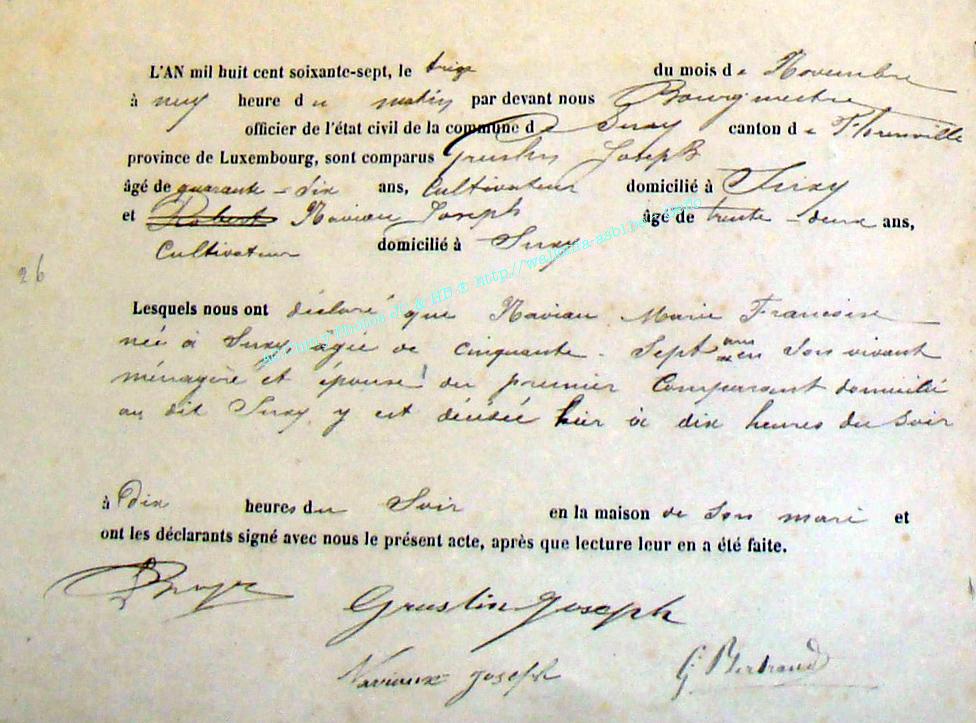 L'AN mil huit cent soixante-sept, le treize du mois de Novembre
à neuf heure du matin par devant nous Bourgmestre
officier de l'état civil de la commune de Suxy canton de Florenville
province de Luxembourg, sont comparus Gruslin Joseph
âgé de quarante-six ans, Cultivateur domicilié à Suxy
et Robert Naviau Joseph âgé de trente-deux ans,
Cultivateur domicilié à Suxy
26
Lesquels nous ont déclaré que Naviau Marie Francoise
née à Suxy, agée de cinquante-sept ans en son vivant
ménagère et épouse du premier Comparant domicilié
au dit Suxy y est décédée hier à dix heures du soir
à dix heures du Soir en la maison de son mari et
ont les déclarants signé avec nous le présent acte, après que lecture leur en a été faite.
Gruslin Joseph
Naviaux Joseph G. Bertrand